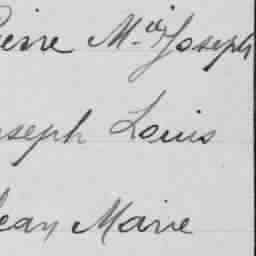 Pierre M.ie Joseph
Joseph Louis
Jean Marie